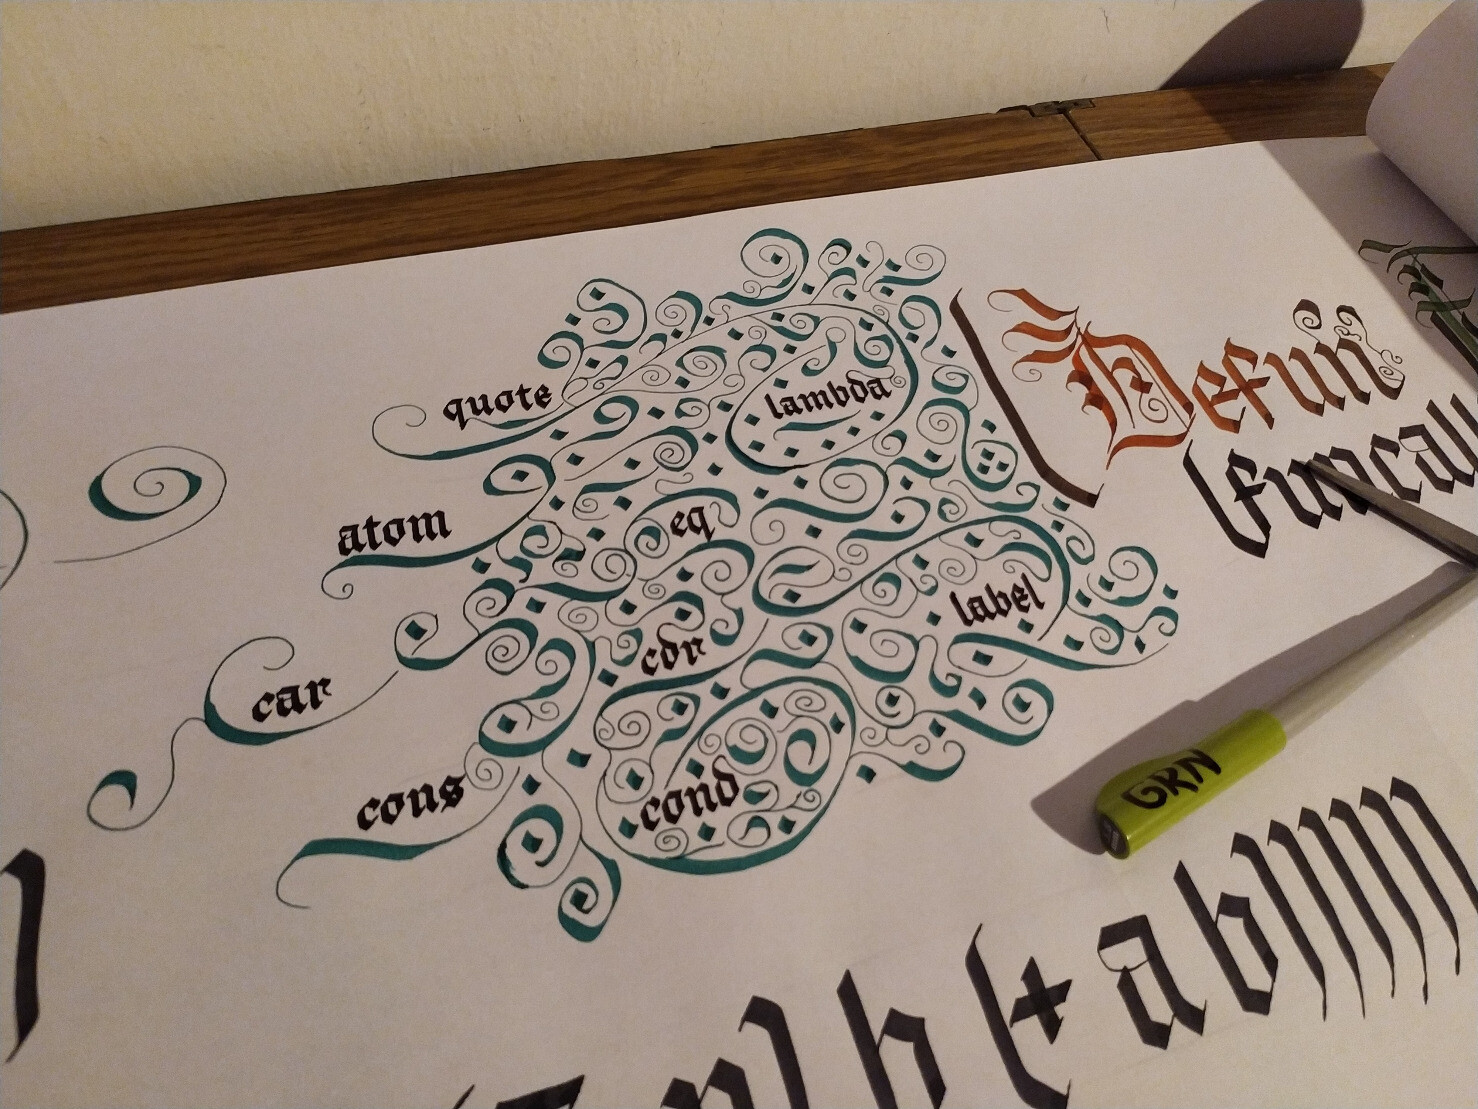 quote
lambda
atom
eq
car
cdr
label
cons
cond
(Defun
(funcall
GRN
(+ a b))))))